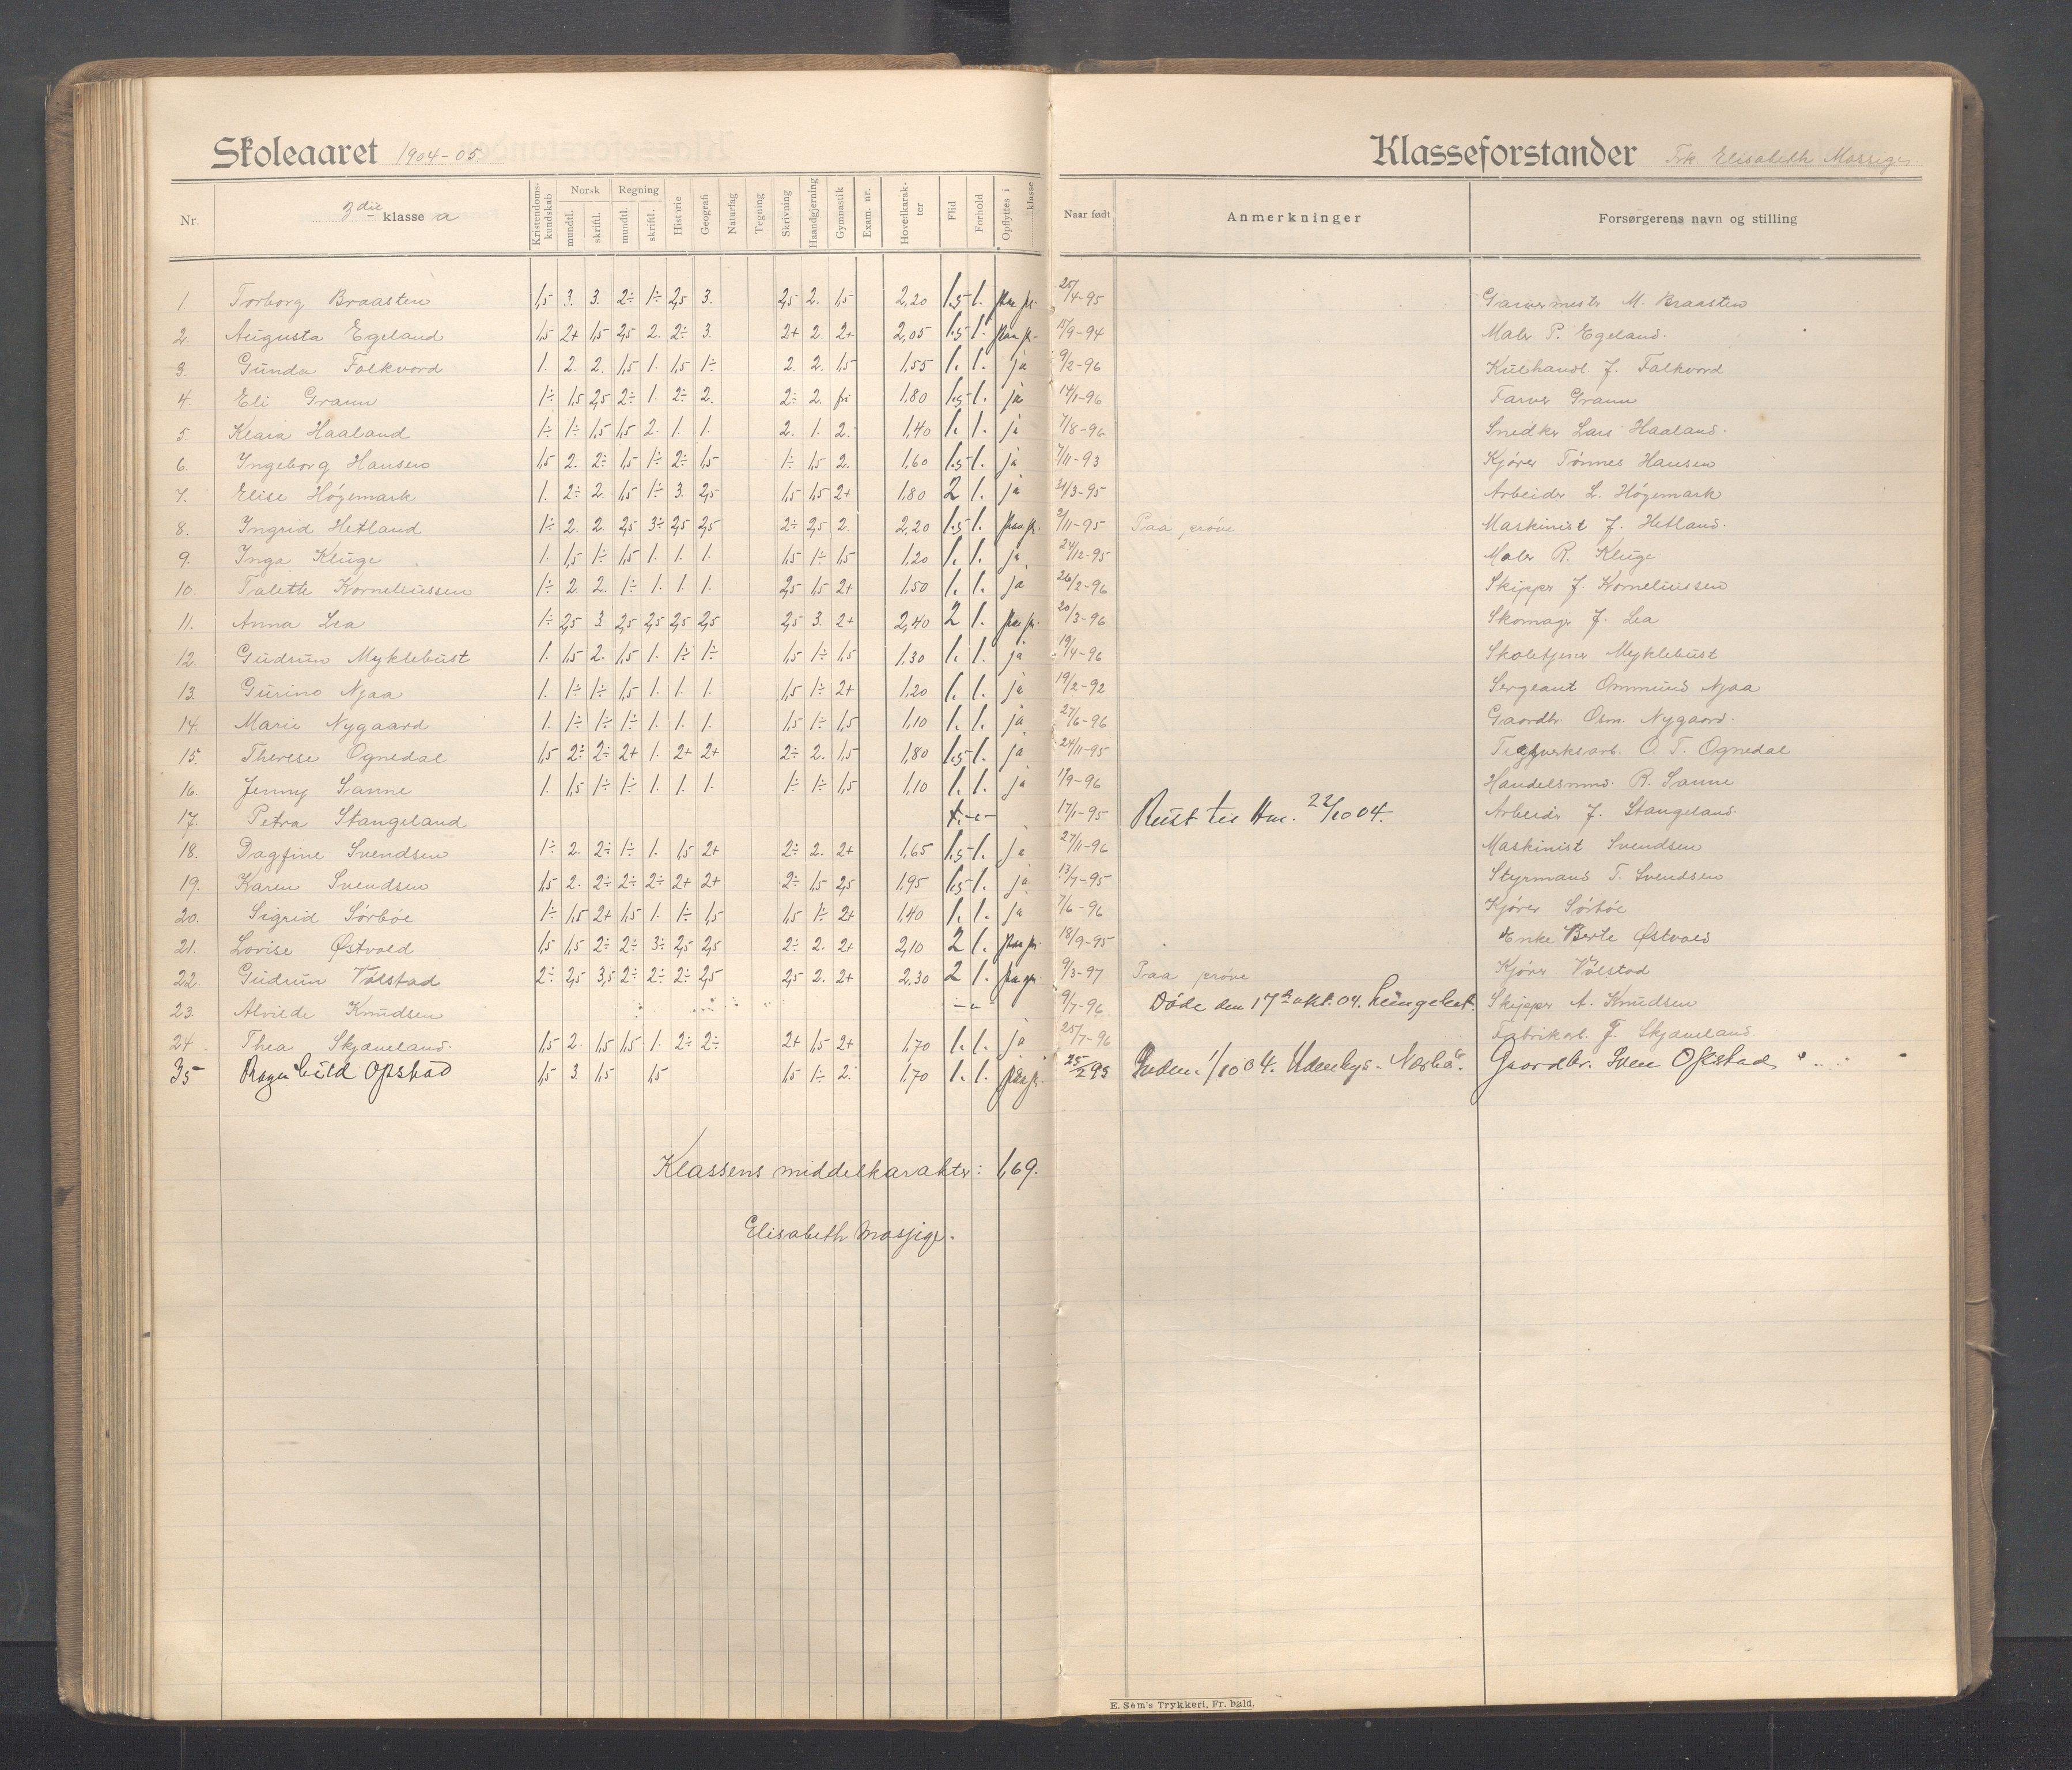 Skoleaaret 1904-05
Klasseforstander Frk. Elisabeth Mossige
Nr. 3die klasse a Kristendomskundskab Norsk mundtl. skriftl. Regning mundtl. skriftl. Historie Geografi Naturfag Tegning Skrivning Haandgjerning Gymnastik Exam. nr. Hovedkarakter Flid Forhold Opflyttes i klasse Naar født Anmerkninger Forsørgerens navn og stilling
1. Torborg Braasten 1,5 3. 3. 2÷ 1÷ 2,5 3. 2,5 2. 1,5 2,20 1.5 1. paa pr. 25/4-95 Garvermester M. Braasten
2. Augusta Egeland 1,5 2+ 1,5 2,5 2. 2÷ 3. 2+ 2. 2+ 2,05 1.5 1. paa pr. 15/9-94 Maler P. Egeland.
3. Gunda Folkvord 1. 2. 2. 1,5 1. 1,5 1÷ 2. 2. 1,5 1,55 1. 1. ja 9/2-96 Kulhandl. J. Folkvord
4. Eli Grann 1÷ 1,5 2,5 2÷ 1. 2÷ 2. 2÷ 2. fri 1,80 1.5 1. ja 14/1-96 Farver Grann
5. Klara Haaland 1÷ 1÷ 1,5 1,5 2. 1. 1. 2. 1. 2. 1,40 1. 1. ja 7/8-96 Snedker Lars Haaland.
6. Ingeborg Hansen 1,5 2. 2÷ 1,5 1÷ 2÷ 1,5 1÷ 1,5 2. 1,60 1.5 1. ja 7/11-93 Kjører Tønnes Hansen
7. Elise Høgemark 1. 2÷ 2. 1,5 1÷ 3. 2,5 1,5 1,5 2+ 1,80 2 1. ja 31/3-95 Arbeider L. Høgemark
8. Ingrid Hetland 1÷ 2. 2. 2,5 3÷ 2,5 2,5 2÷ 2,5 2. 2,20 1.5 1. paa pr. 2/11-95 Paa prøve Maskinist J. Hetland.
9. Inga Kluge 1. 1,5 1÷ 1,5 1. 1. 1. 1,5 1÷ 1,5 1,20 1. 1. ja 24/12-95 Maler R. Kluge
10. Talette Korneliussen 1÷ 2. 2. 1÷ 1. 1. 1. 2,5 1,5 2+ 1,50 1. 1. ja 26/2-96 Skipper J. Korneliussen
11. Anna Lea 1÷ 2,5 3. 2,5 2,5 2,5 2,5 2,5 3. 2+ 2,40 2 1. paa pr. 20/3-96 Skomager J. Lea
12. Gudrun Myklebust 1. 1,5 2. 1,5 1. 1÷ 1÷ 1,5 1÷ 1,5 1,30 1. 1. ja 19/4-96 Skoletjener Myklebust
13. Gurine Njaa 1. 1÷ 1÷ 1,5 1. 1. 1. 1,5 1÷ 2+ 1,20 1. 1. ja 19/2-92 Sergeant Ommund Njaa
14. Marie Nygaard 1. 1÷ 1÷ 1÷ 1. 1. 1. 1,5 1÷ 1,5 1,10 1. 1. ja 27/6-96 Gaardbr. Osm. Nygaard.
15. Therese Ognedal 1,5 2÷ 2÷ 2+ 1. 2+ 2+ 2÷ 2. 1,5 1,80 1.5 1. ja 24/11-95 Teglverksarb. O. T. Ognedal
16. Jenny Sanne 1. 1,5 1÷ 1÷ 1. 1. 1. 1÷ 1÷ 1,5 1,10 1. 1. ja 1/9-96 Handelsmand. R. Sanne
17. Petra Stangeland 17/1-95 Reist til Am. 22/10 04. Arbeider J. Stangeland.
18. Dagfine Svendsen 1÷ 2. 2÷ 1÷ 1. 1,5 2+ 2÷ 2. 2+ 1,65 1.5 1. ja 27/11-96 Maskinist Svendsen
19. Karen Svendsen 1,5 2. 2÷ 2÷ 2÷ 2+ 2+ 2÷ 1,5 2,5 1,95 1.5 1. ja 13/7-95 Styrmand T. Svendsen
20. Sigrid Sørbøe 1÷ 1,5 2+ 1,5 1. 1÷ 1,5 1,5 1÷ 2+ 1,40 1. 1. ja 7/6-96 Kjører Sørbøe
21. Lovise Østvold 1,5 1,5 2÷ 2÷ 3÷ 2,5 2,5 2÷ 2. 2+ 2,10 2 1. paa pr. 18/9-95 Enke Berte Østvold
22. Gudrun Vølstad 2÷ 2,5 3,5 2÷ 2÷ 2÷ 2,5 2,5 2. 2+ 2,30 2 1. paa pr. 9/3-97 Paa prøve Kjører Vølstad
23. Alvilde Knudsen 9/7-96 Døde den 17de okt. 04. Skipper A. Knudsen
24. Thea Skjæveland. 1,5 2. 1,5 1,5 1. 2÷ 2÷ 2+ 1,5 2+ 1,70 1. 1. ja 25/7-96 Fabrikarb. J. Skjæveland.
35 Ragnhild Opstad 1,5 3. 1,5 1,5 1,5 1÷ 2. 1,70 1. 1. paa pr. 25/2 93 Inden. 1/10 04. Udenbys. Nærbø. Gaardbr. Sven Opstad
Klassens middelkarakter: 1,69.
Elisabeth Mossige.
E. Sem's Trykkeri, Fr. hald.